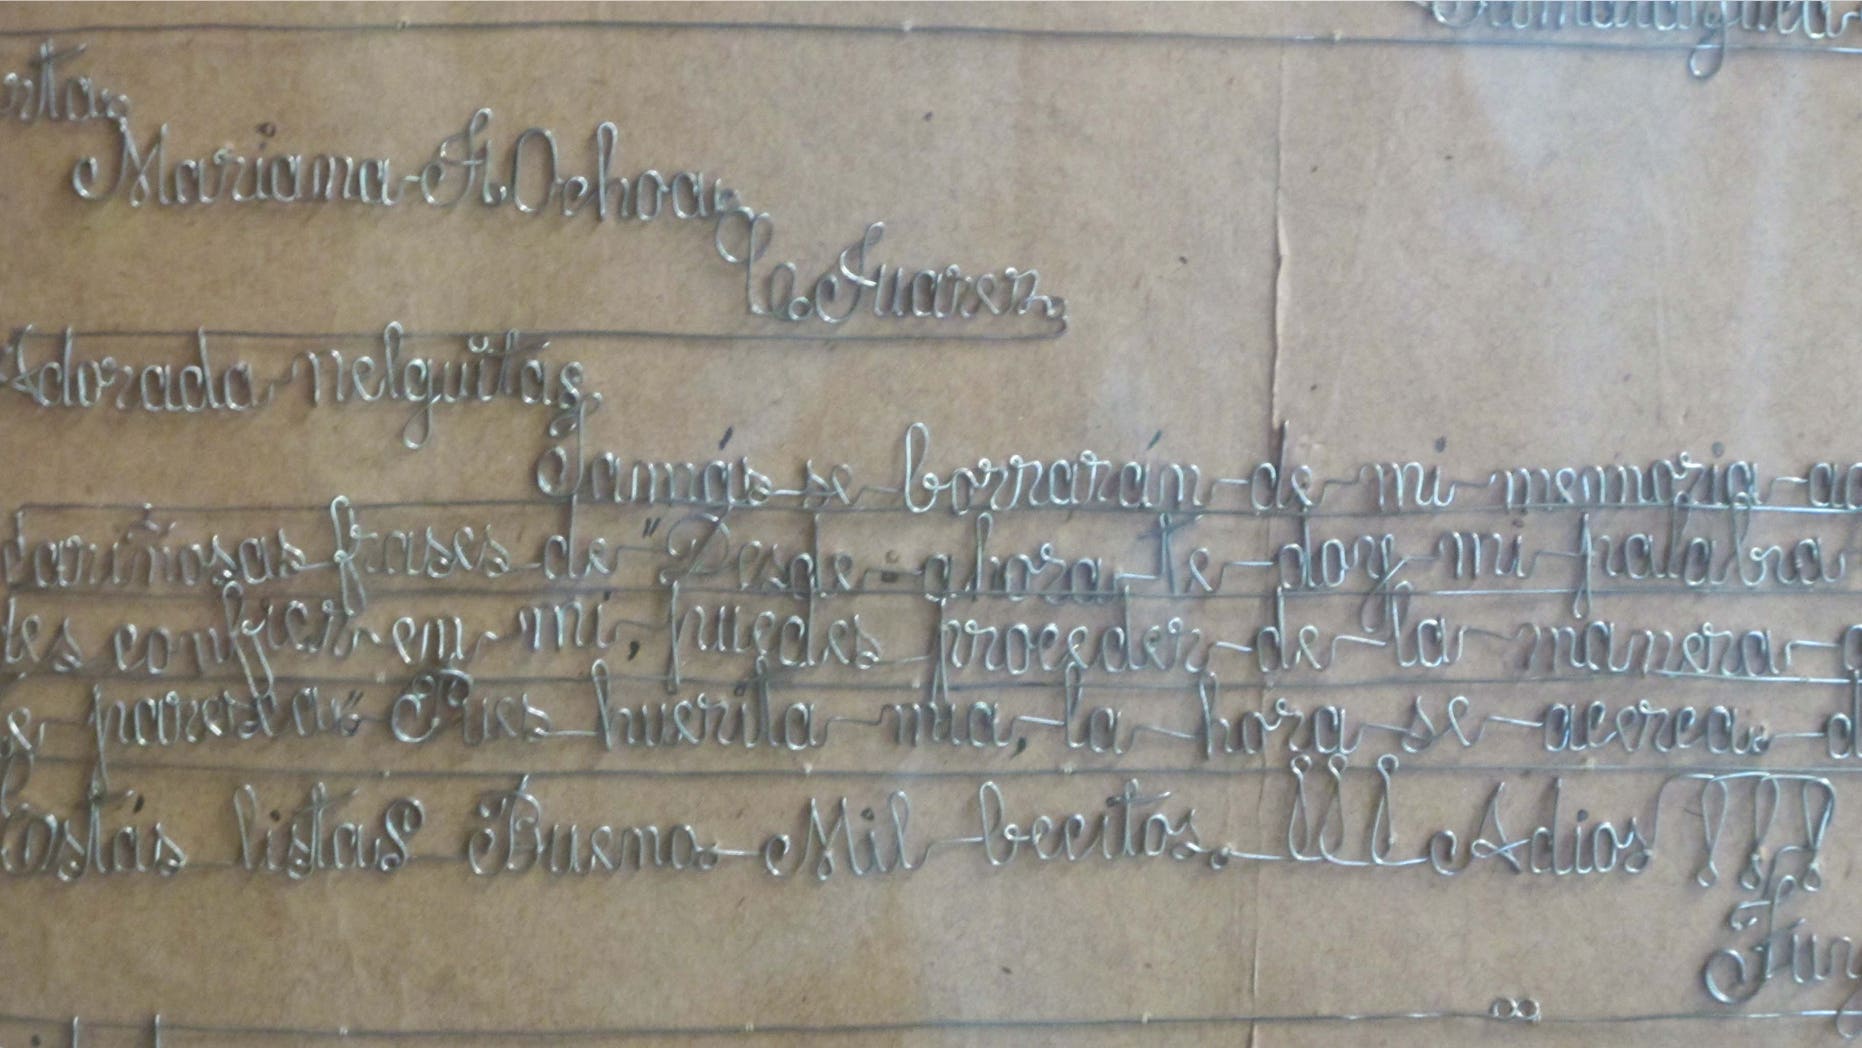 Mariana F. Ochoa
Juarez
Adorada nelguitas
Jamás se borrarán de mi memoria
cariñosas frases de "Desde ahora te doy mi palabra
confier en mi, puedes proceder de la manera
paresca" Pues huerita mia, la hora se acerca.
Estás lista? Bueno Mil becitos. ¡¡¡Adios!!!